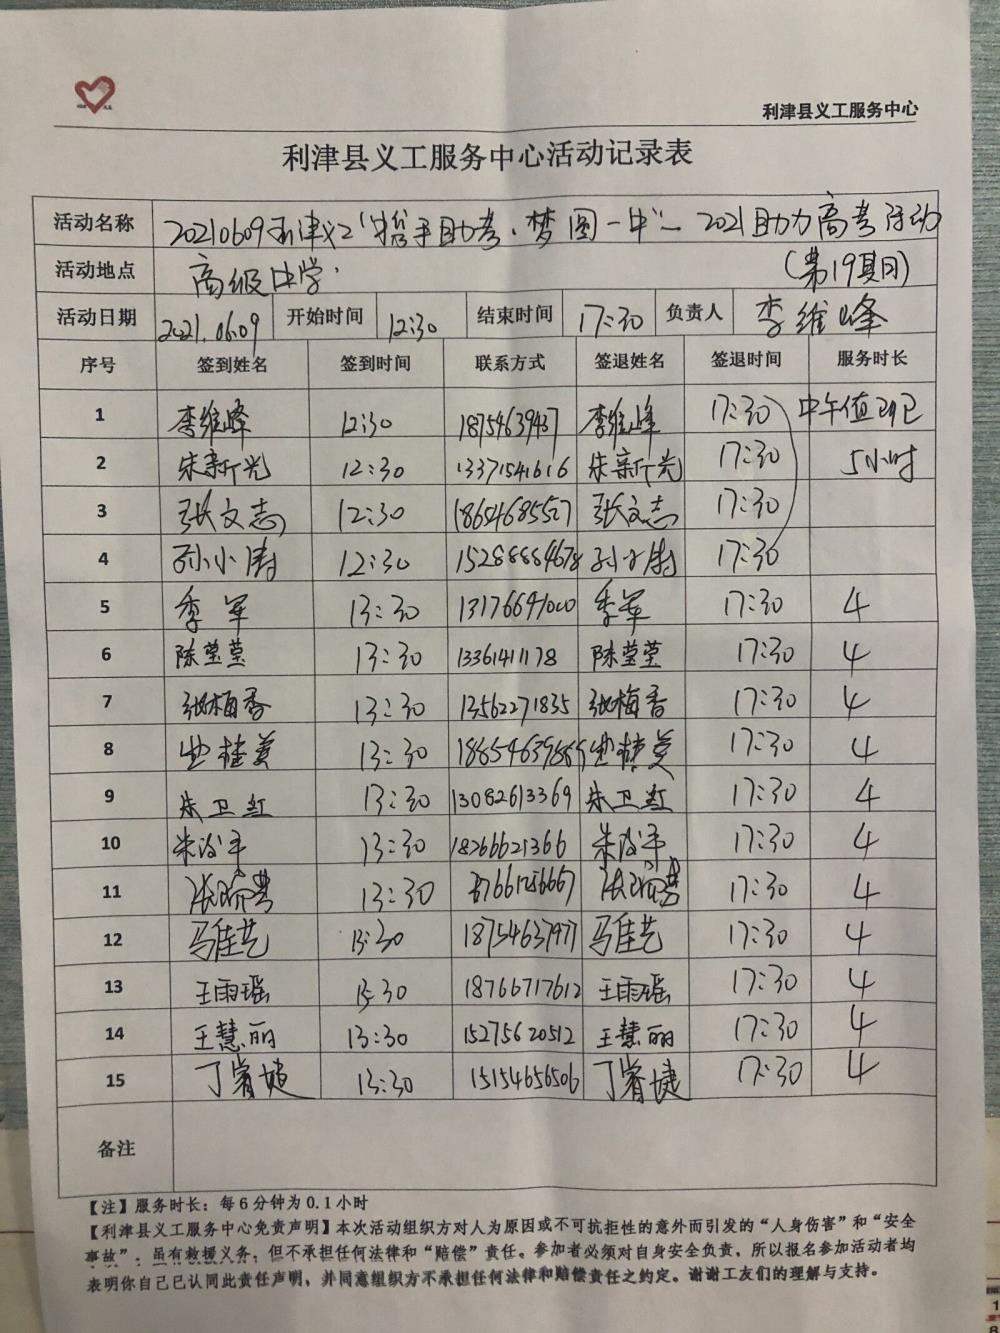 利津县义工服务中心
利津县义工服务中心活动记录表
活动名称 20210609利津义工"携手助考·梦圆一中"—2021助力高考活动
活动地点 高级中学. (第19期)
活动日期 2021.06.09 开始时间 12:30 结束时间 17:30 负责人 李维峰
序号 签到姓名 签到时间 联系方式 签退姓名 签退时间 服务时长
1 李维峰 12:30 18754639437 李维峰 17:30 中午值班
2 朱新光 12:30 13371541616 朱新光 17:30 5小时
3 张文志 12:30 18654685527 张文志 17:30
4 孙小涛 12:30 15288884678 孙小涛 17:30
5 季军 13:30 13176691000 季军 17:30 4
6 陈莹莹 13:30 13361411178 陈莹莹 17:30 4
7 张梅香 13:30 13562271835 张梅香 17:30 4
8 桂美 13:30 桂美 17:30 4
9 朱卫红 13:30 13082613369 朱卫红 17:30 4
10 13:30 18266621366 17:30 4
11 13:30 17:30 4
12 马佳艺 13:30 18754637977 马佳艺 17:30 4
13 王雨瑶 13:30 18766717612 王雨瑶 17:30 4
14 王慧丽 13:30 15275620512 王慧丽 17:30 4
15 丁睿婕 13:30 15154656506 丁睿婕 17:30 4
备注
【注】服务时长：每6分钟为0.1小时
【利津县义工服务中心免责声明】本次活动组织方对人为原因或不可抗拒性的意外而引发的“人身伤害”和“安全
事故”，虽有救援义务，但不承担任何法律和“赔偿”责任。参加者必须对自身安全负责，所以报名参加活动者均
表明你自己已认同此责任声明，并同意组织方不承担任何法律和赔偿责任之约定。谢谢工友们的理解与支持。